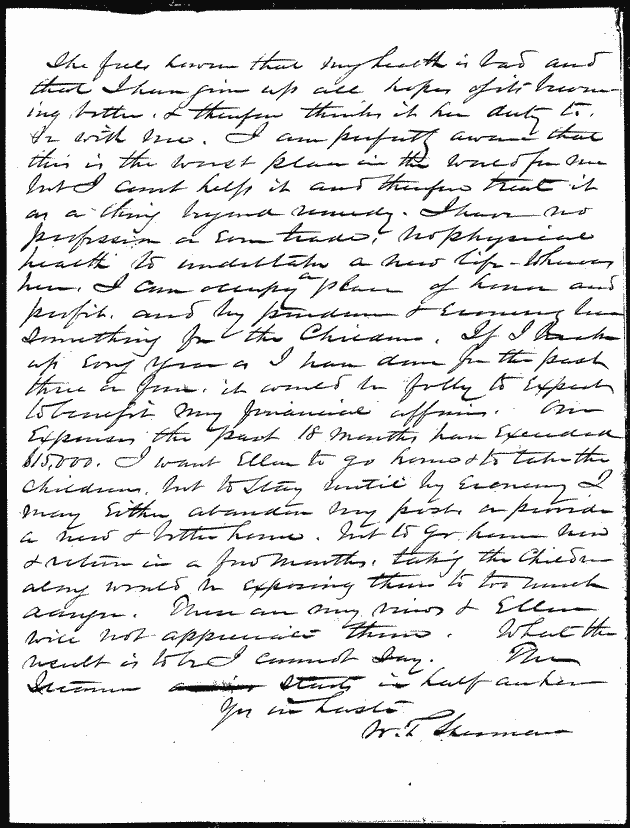 She feels however that my health is bad and
that I have given up all hopes of its becom-
ing better. & therefore thinks it her duty to
be with me. I am perfectly aware that
this is the worst place in the world for me
but I cant help it and therefore treat it
as a thing beyond remedy. I have no
profession or even trade, no physical
health to undertake a new life - Whereas
here, I can occupy a place of honor and
profit. and by prudence & Economy leave
something for the Children. If I break
up Every Year as I have done for the past
three or four, it would be folly to Expect
to benefit my financial affairs. Our
Expenses the past 18 months have Exceeded
$15,000. I want Ellen to go home & to take the
children, but to stay until by Economy I
may Either abandon my post or provide
a new & better home. but to go home now
& return in a few months, taking the Children
along would be exposing them to too much
danger. These are my views & Ellen
will not appreciate them. What the
result is to be I cannot say. The
Steamer starts in half an hour
Yrs in haste
W. T. Sherman